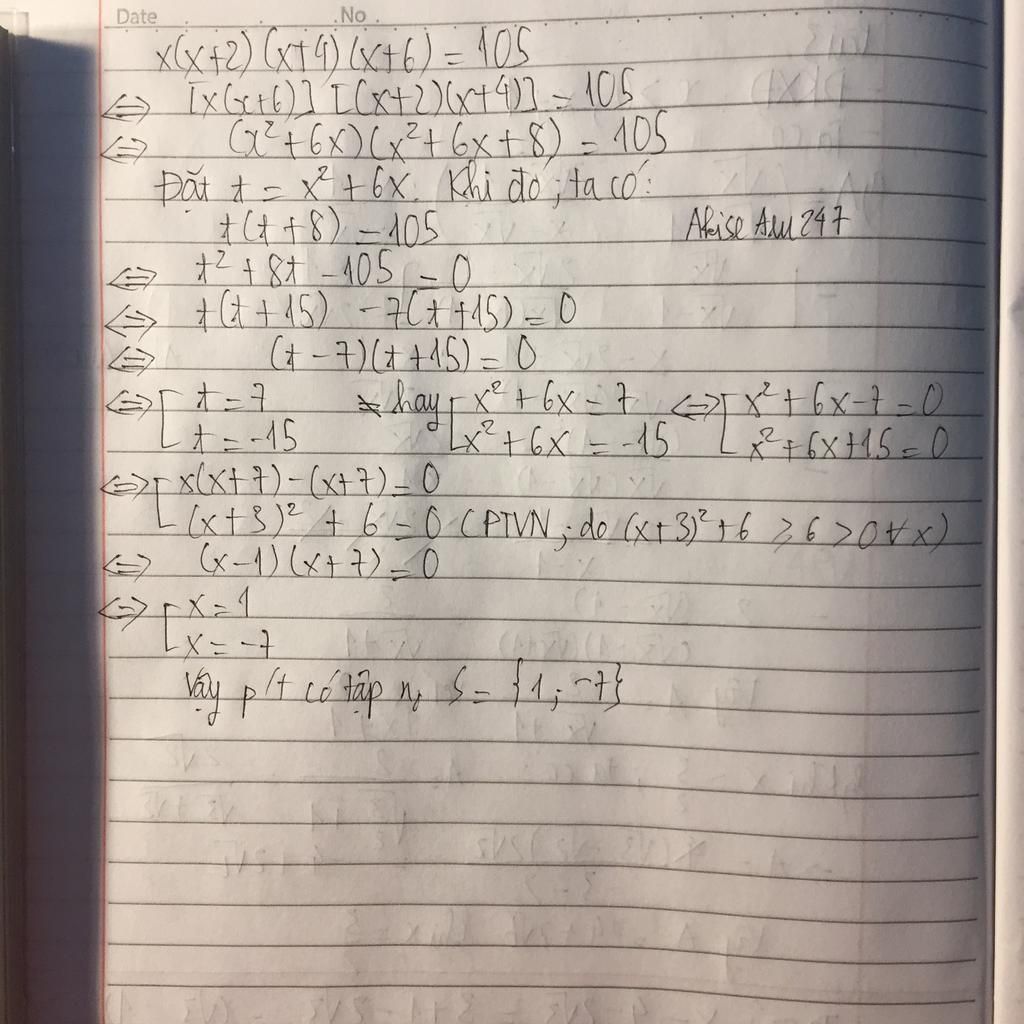 Date No.
x(x+2)(x+4)(x+6) = 105
⇔ [x(x+6)] [(x+2)(x+4)] = 105
⇔ (x²+6x)(x²+6x+8) = 105
Đặt t = x²+6x. Khi đó; ta có:
t(t+8) = 105 Akise Aru 247
⇔ t² + 8t - 105 = 0
⇔ t(t+15) - 7(t+15) = 0
⇔ (t-7)(t+15) = 0
⇔ [ t = 7 hay [ x²+6x = 7 ⇔ [ x²+6x-7 = 0
t = -15 x²+6x = -15 x²+6x+15 = 0
⇔ [ x(x+7)-(x+7) = 0
(x+3)² + 6 = 0 (PTVN; do (x+3)²+6 ≥ 6 > 0 ∀x)
⇔ (x-1)(x+7) = 0
⇔ [ x = 1
x = -7
Vậy p/t có tập n₀ S = {1; -7}